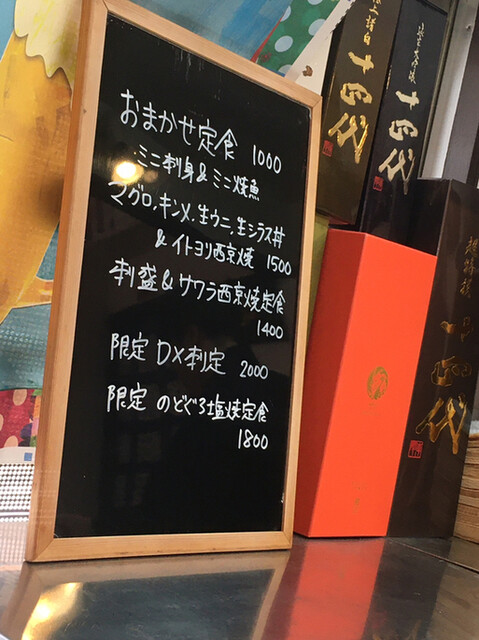 おまかせ定食 1000
ミニ刺身&ミニ焼魚
マグロ,キンメ,生ウニ,生シラス丼
&イトヨリ西京焼 1500
刺盛&サワラ西京焼定食
1400
限定 DX刺定 2000
限定 のどぐろ塩焼定食
1800
十四代
十四代
十四代